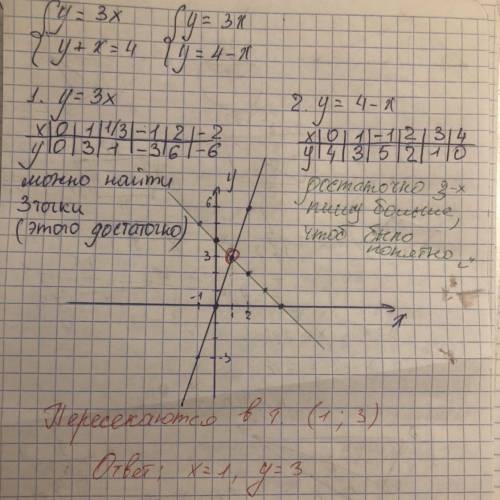 { y = 3x   { y = 3x
{ y + x = 4   { y = 4 - x
1. y = 3x
x | 0 | 1 | 1/3 | -1 | 2 | -2
y | 0 | 3 | 1 | -3 | 6 | -6
можно найти
3 точки
(этого достаточно)
2. y = 4 - x
x | 0 | 1 | -1 | 2 | 3 | 4
y | 4 | 3 | 5 | 2 | 1 | 0
достаточно 3-х
пишу больше,
чтоб было
понятно
y
6
3
-1 1 2 x
-3
Пересекаются в т. (1; 3)
Ответ: x = 1, y = 3